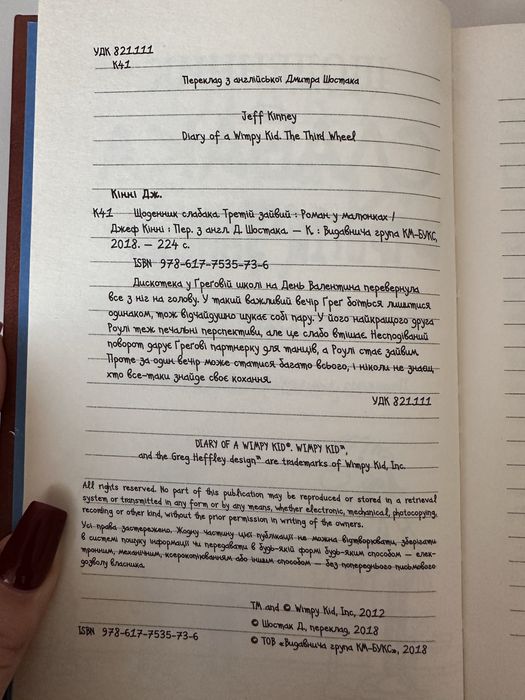 УДК 821.111
К41
Переклад з англійської Дмитра Шостака
Jeff Kinney
Diary of a Wimpy Kid. The Third Wheel
Кінні Дж.
К41 Щоденник слабака. Третій зайвий : Роман у малюнках /
Джеф Кінні ; Пер. з англ. Д. Шостака. — К. : Видавнича група КМ-БУКС,
2018. — 224 с.
ISBN 978-617-7535-73-6
Дискотека у Ґреґовій школі на День Валентина перевернула
все з ніг на голову. У такий важливий вечір Ґреґ боїться лишитися
одинаком, тож відчайдушно шукає собі пару. У його найкращого друга
Роулі теж печальні перспективи, але це слабо втішає. Несподіваний
поворот дарує Ґреґові партнерку для танців, а Роулі стає зайвим.
Проте за один вечір може статися багато всього, і ніколи не знаєш,
хто все-таки знайде своє кохання.
УДК 821.111
DIARY OF A WIMPY KID®, WIMPY KID™,
and the Greg Heffley design™ are trademarks of Wimpy Kid, Inc.
All rights reserved. No part of this publication may be reproduced or stored in a retrieval
system or transmitted in any form or by any means, whether electronic, mechanical, photocopying,
recording or other kind, without the prior permission in writing of the owners.
Усі права застережено. Жодну частину цієї публікації не можна відтворювати, зберігати
в системі пошуку інформації чи передавати в будь-якій формі будь-яким способом — елек-
тронним, механічним, ксерокопіюванням або іншим способом — без попереднього письмового
дозволу власника.
TM and © Wimpy Kid, Inc, 2012
© Шостак Д., переклад, 2018
ISBN 978-617-7535-73-6 © ТОВ «Видавнича група КМ-БУКС», 2018